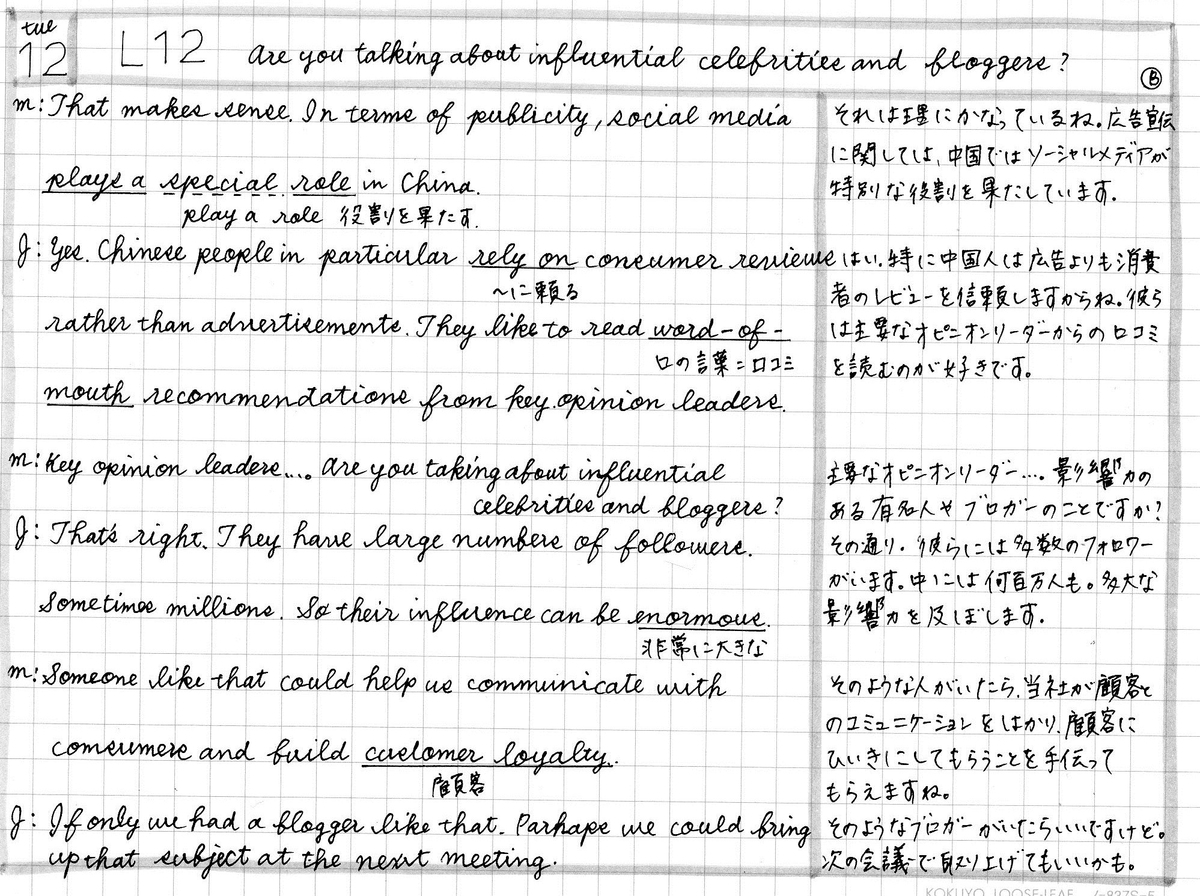 tue
12
L12 Are you talking about influential celebrities and bloggers?
Ⓑ
m: That makes sense. In terms of publicity, social media
plays a special role in China.
play a role 役割を果たす.
J: Yes. Chinese people in particular rely on consumer reviews
〜に頼る
rather than advertisements. They like to read word-of-
口の言葉=口コミ
mouth recommendations from key opinion leaders.
m: Key opinion leaders.... Are you taking about influential
celebrities and bloggers?
J: That's right. They have large numbers of followers.
Sometimes millions. So their influence can be enormous.
非常に大きな
m: Someone like that could help us communicate with
comsumers and build customer loyalty.
顧客
J: If only we had a blogger like that. Parhaps we could bring
up that subject at the next meeting.
それは理にかなっているね。広告宣伝
に関しては、中国ではソーシャルメディアが
特別な役割を果たしています.
はい.特に中国人は広告よりも消費
者のレビューを信頼しますからね。彼ら
は主要なオピニオンリーダーからの口コミ
を読むのが好きです。
主要なオピニオンリーダー.... 影響力の
ある有名人やブロガーのことですか?
その通り.彼らには多数のフォロワー
がいます.中には何百万人も。多大な
影響力を及ぼします.
そのような人がいたら、当社が顧客と
のコミュニケーションをはかり、顧客に
ひいきにしてもらうことを手伝って
もらえますね。
そのようなブロガーがいたらいいですけど。
次の会議で取り上げてもいいかも。
KOKUYO LOOSE-LEAF